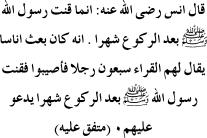 قال انس رضى الله عنه: انما قنت رسول الله
ﷺ بعد الركوع شهرا . انه كان بعث اناسا
يقال لهم القراء سبعون رجلا فأصيبوا فقنت
رسول الله ﷺ بعد الركوع شهرا يدعو
عليهم . (متفق عليه)